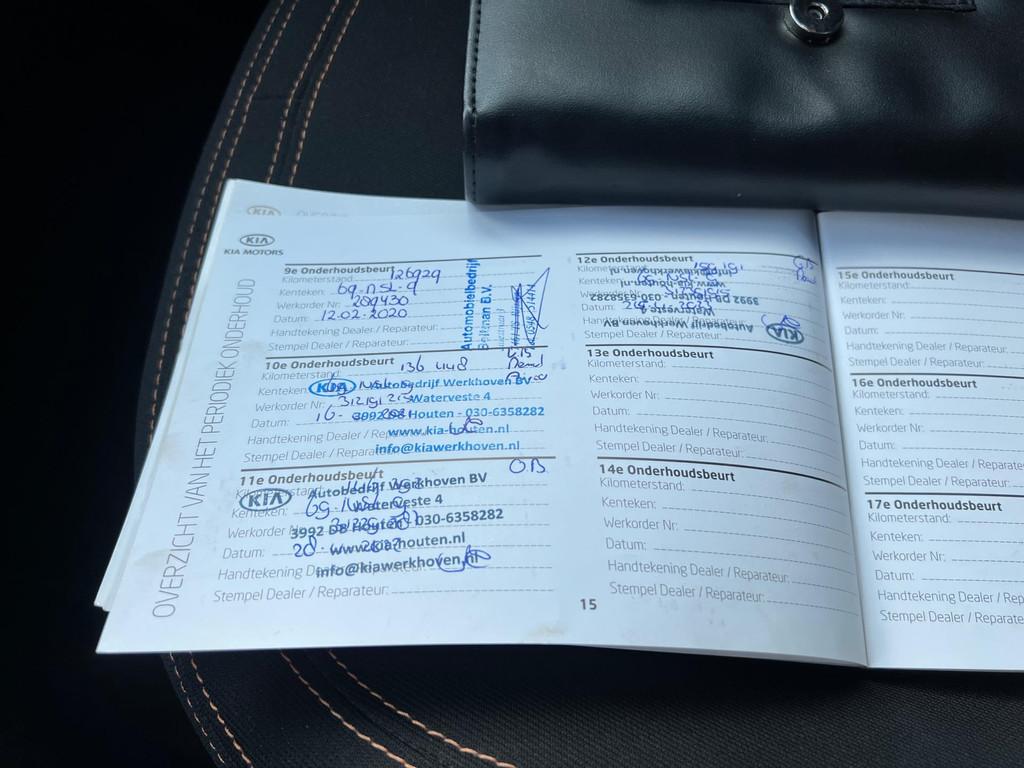 KIA
KIA MOTORS
OVERZICHT VAN HET PERIODIEK ONDERHOUD
9e Onderhoudsbeurt
Kilometerstand: 126929
Kenteken: 69-NSL-9
Werkorder Nr: 209430
Datum: 12-02-2020
Handtekening Dealer / Reparateur:
Stempel Dealer / Reparateur:
Automobielbedrijf
B.V.
10e Onderhoudsbeurt
Kilometerstand: 136 448
Kenteken:
Werkorder Nr:
Datum: 16-
Handtekening Dealer / Reparateur:
Stempel Dealer / Reparateur:
KIA Autobedrijf Werkhoven BV
Waterveste 4
3992 DB Houten - 030-6358282
www.kia-houten.nl
info@kiawerkhoven.nl
11e Onderhoudsbeurt
OB
Kilometerstand:
Kenteken:
Werkorder Nr:
Datum: 20-
Handtekening Dealer / Reparateur:
Stempel Dealer / Reparateur:
KIA Autobedrijf Werkhoven BV
Waterveste 4
3992 DB Houten - 030-6358282
www.kia-houten.nl
info@kiawerkhoven.nl
12e Onderhoudsbeurt
Kilometerstand:
Kenteken:
Werkorder Nr:
Datum:
Handtekening Dealer / Reparateur:
Stempel Dealer / Reparateur:
KIA Autobedrijf Werkhoven BV
Waterveste 4
3992 DB Houten - 030-6358282
www.kia-houten.nl
info@kiawerkhoven.nl
13e Onderhoudsbeurt
Kilometerstand:
Kenteken:
Werkorder Nr:
Datum:
Handtekening Dealer / Reparateur:
Stempel Dealer / Reparateur:
14e Onderhoudsbeurt
Kilometerstand:
Kenteken:
Werkorder Nr:
Datum:
Handtekening Dealer / Reparateur:
Stempel Dealer / Reparateur:
15
15e Onderhoudsbeurt
Kilometerstand:
Kenteken:
Werkorder Nr:
Datum:
Handtekening Dealer / Reparateur:
Stempel Dealer / Reparateur:
16e Onderhoudsbeurt
Kilometerstand:
Kenteken:
Werkorder Nr:
Datum:
Handtekening Dealer / Reparate
Stempel Dealer / Reparateur:
17e Onderhoudsbeurt
Kilometerstand:
Kenteken:
Werkorder Nr:
Datum:
Handtekening Dealer / Rep
Stempel Dealer / Reparate